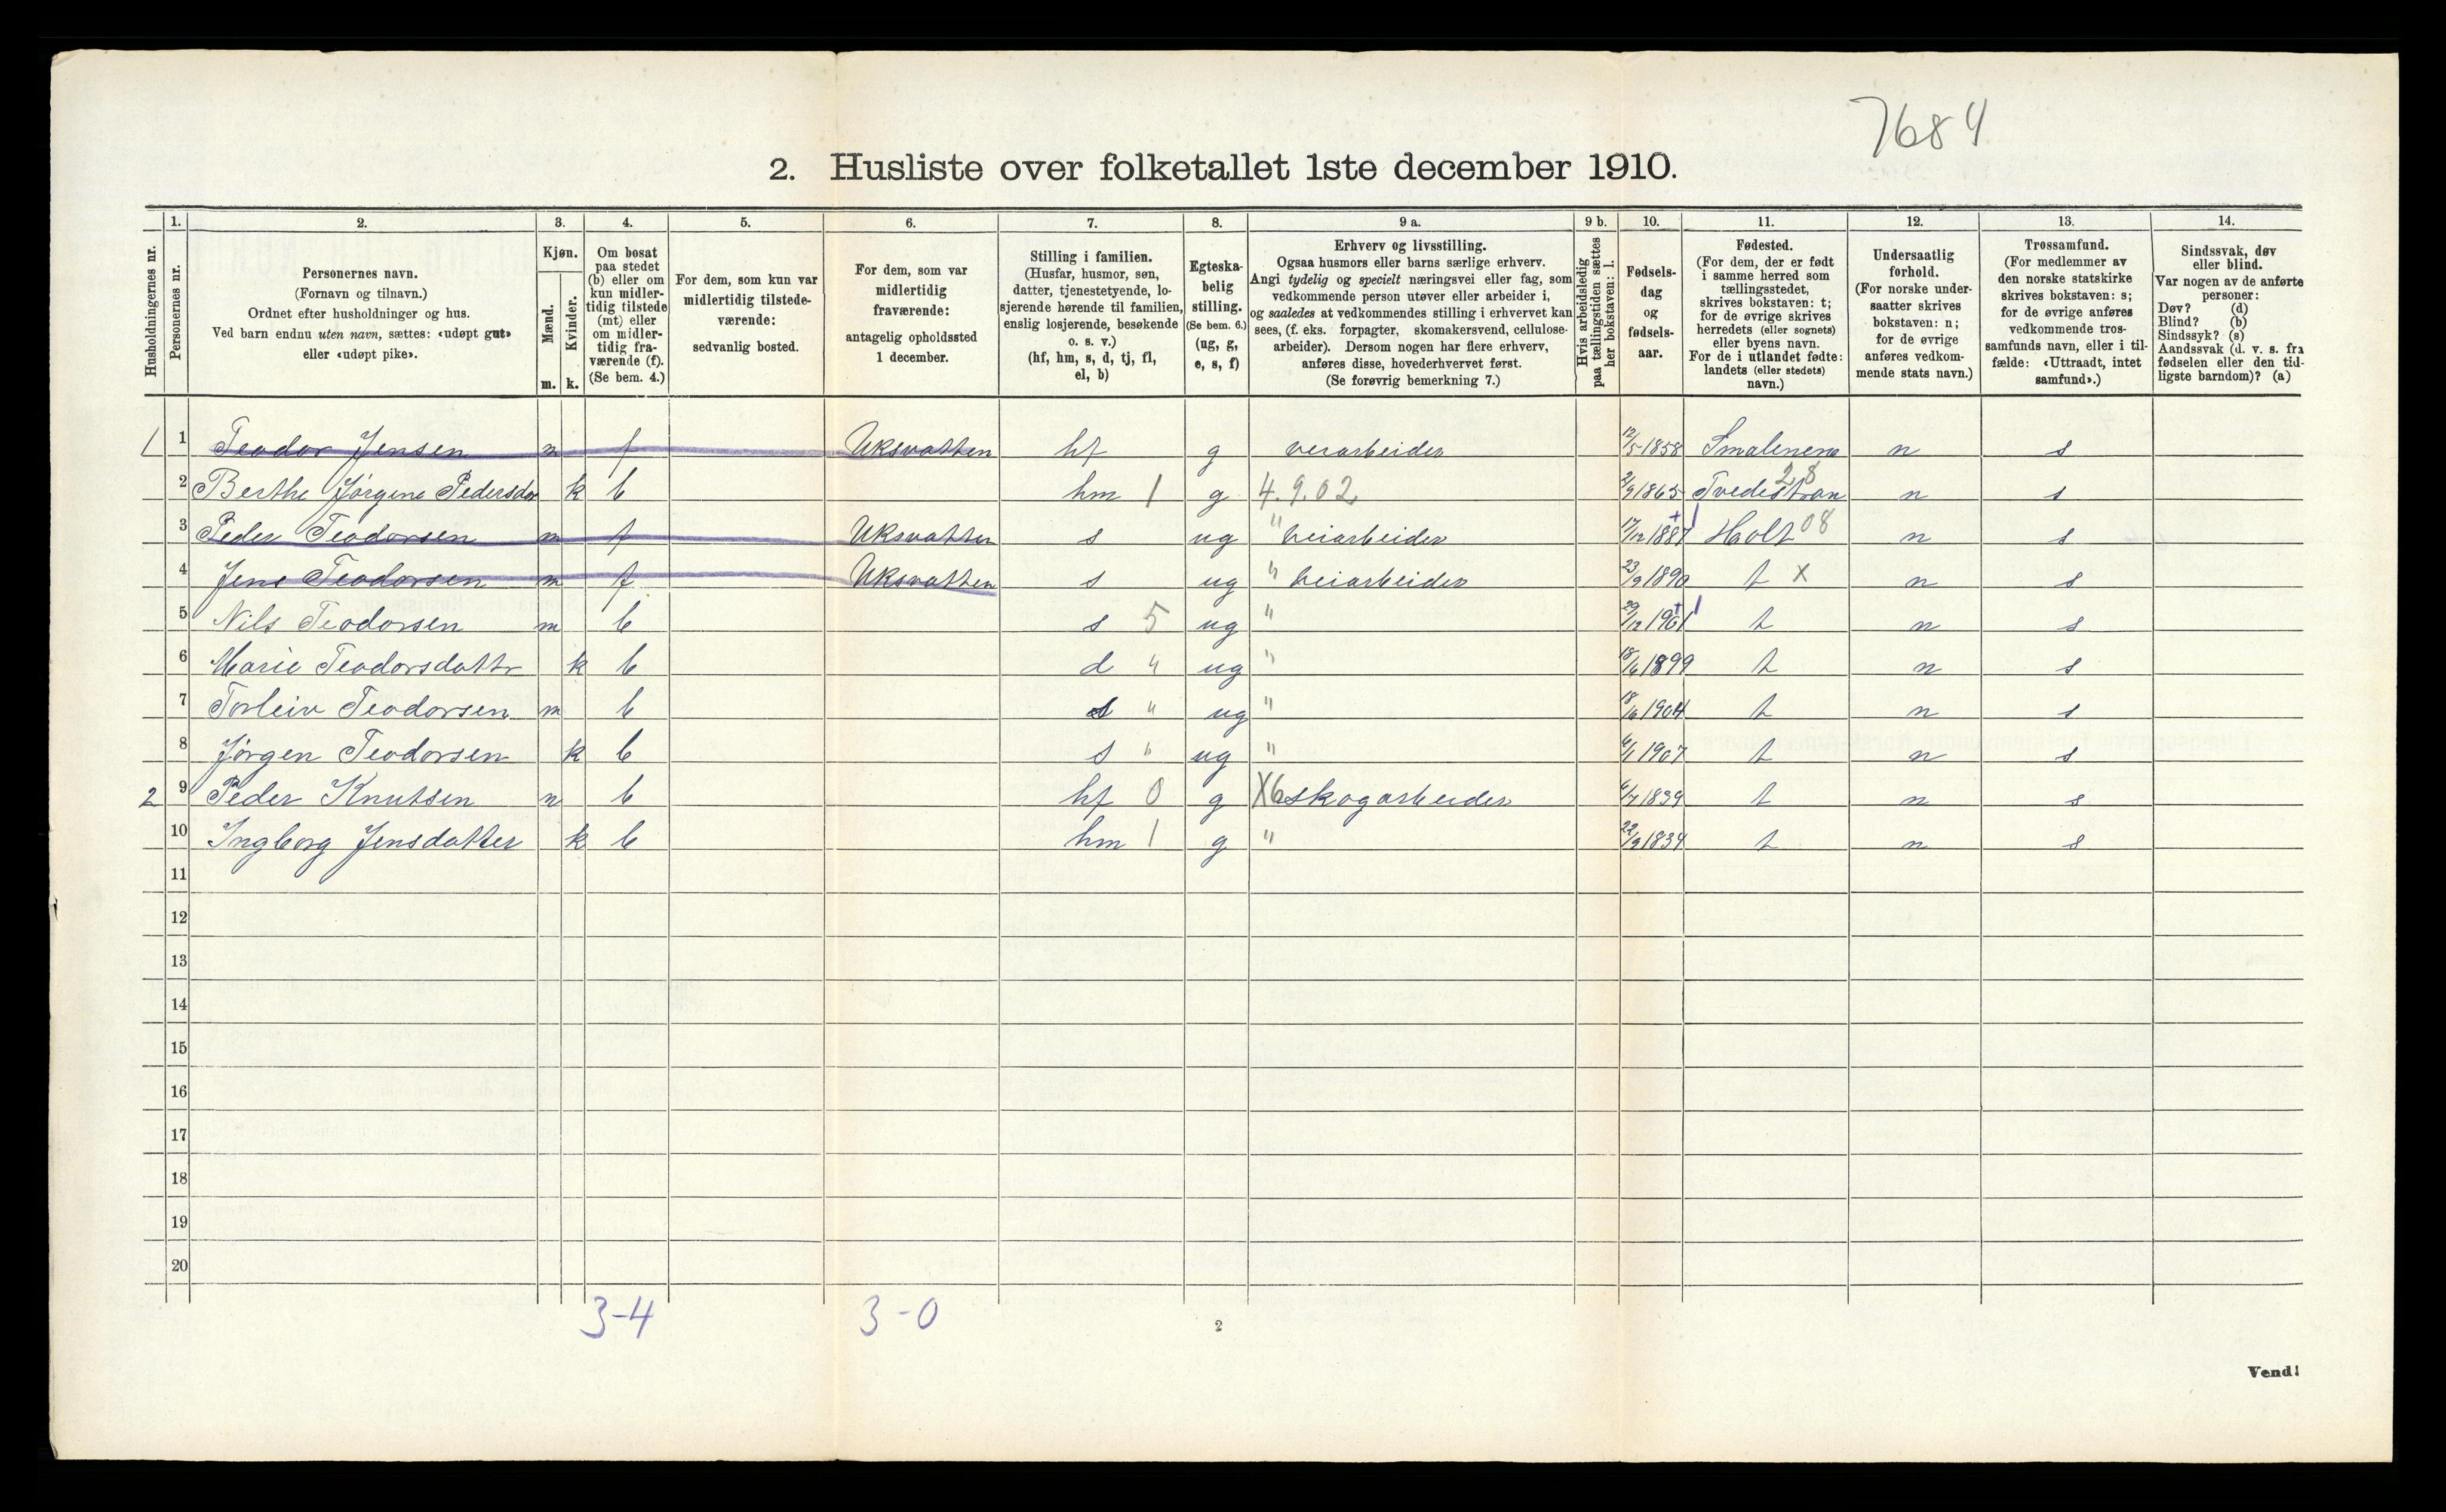 7684
2. Husliste over folketallet 1ste december 1910.
Husholdningernes nr.
1. Personernes nr.
2. Personernes navn.
(Fornavn og tilnavn.)
Ordnet efter husholdninger og hus.
Ved barn endnu uten navn, sættes: «udøpt gut»
eller «udøpt pike».
3. Kjøn.
Mænd. m.
Kvinder. k.
4. Om bosat
paa stedet
(b) eller om
kun midler-
tidig tilstede
(mt) eller
om midler-
tidig fra-
værende (f).
(Se bem. 4.)
5. For dem, som kun var
midlertidig tilstede-
værende:
sedvanlig bosted.
6. For dem, som var
midlertidig
fraværende:
antagelig opholdssted
1 december.
7. Stilling i familien.
(Husfar, husmor, søn,
datter, tjenestetyende, lo-
sjerende hørende til familien,
enslig losjerende, besøkende
o. s. v.)
(hf, hm, s, d, tj, fl,
el, b)
8. Egteska-
belig
stilling.
(Se bem. 6.)
(ug, g,
e, s, f)
9 a. Erhverv og livsstilling.
Ogsaa husmors eller barns særlige erhverv.
Angi tydelig og specielt næringsvei eller fag, som
vedkommende person utøver eller arbeider i,
og saaledes at vedkommendes stilling i erhvervet kan
sees, (f. eks. forpagter, skomakersvend, cellulose-
arbeider). Dersom nogen har flere erhverv,
anføres disse, hovederhvervet først.
(Se forøvrig bemerkning 7.)
9 b. Hvis arbeidsledig
paa tællingstiden sættes
her bokstaven: l.
10. Fødsels-
dag
og
fødsels-
aar.
11. Fødested.
(For dem, der er født
i samme herred som
tællingsstedet,
skrives bokstaven: t;
for de øvrige skrives
herredets (eller sognets)
eller byens navn.
For de i utlandet fødte:
landets (eller stedets)
navn.)
12. Undersaatlig
forhold.
(For norske under-
saatter skrives
bokstaven: n;
for de øvrige
anføres vedkom-
mende stats navn.)
13. Trossamfund.
(For medlemmer av
den norske statskirke
skrives bokstaven: s;
for de øvrige anføres
vedkommende tros-
samfunds navn, eller i til-
fælde: «Uttraadt, intet
samfund».)
14. Sindssvak, døv
eller blind.
Var nogen av de anførte
personer:
Døv? (d)
Blind? (b)
Sindssyk? (s)
Aandssvak (d. v. s. fra
fødselen eller den tid-
ligste barndom)? (a)
1 1 Teodor Jensen m f Uksvatten hf g veiarbeider 12/5 1858 Smalenene n s
2 Berthe Jørgine Pedersdor k b hm 1 g 4.9.02 2/9 1865 Tvedestran 28 n s
3 Peder Teodorsen m f Uksvatten s ug " veiarbeider 17/12 1887 Holt 08 n s
4 Jens Teodorsen m f Uksvatten s ug " veiarbeider 23/9 1890 t x n s
5 Nils Teodorsen m b s 5 ug " 29/12 1901 t n s
6 Marie Teodorsdattr k b d " ug " 18/6 1899 t n s
7 Torleiv Teodorsen m b s " ug " 18/6 1904 t n s
8 Jørgen Teodorsen k b s " ug " 6/1 1907 t n s
2 9 Peder Knutsen m b hf 0 g X6 skogarbeider 6/7 1839 t n s
10 Ingborg Jensdatter k b hm 1 g " 22/9 1834 t n s
11
12
13
14
15
16
17
18
19
20
3-4 3-0
2
Vend!